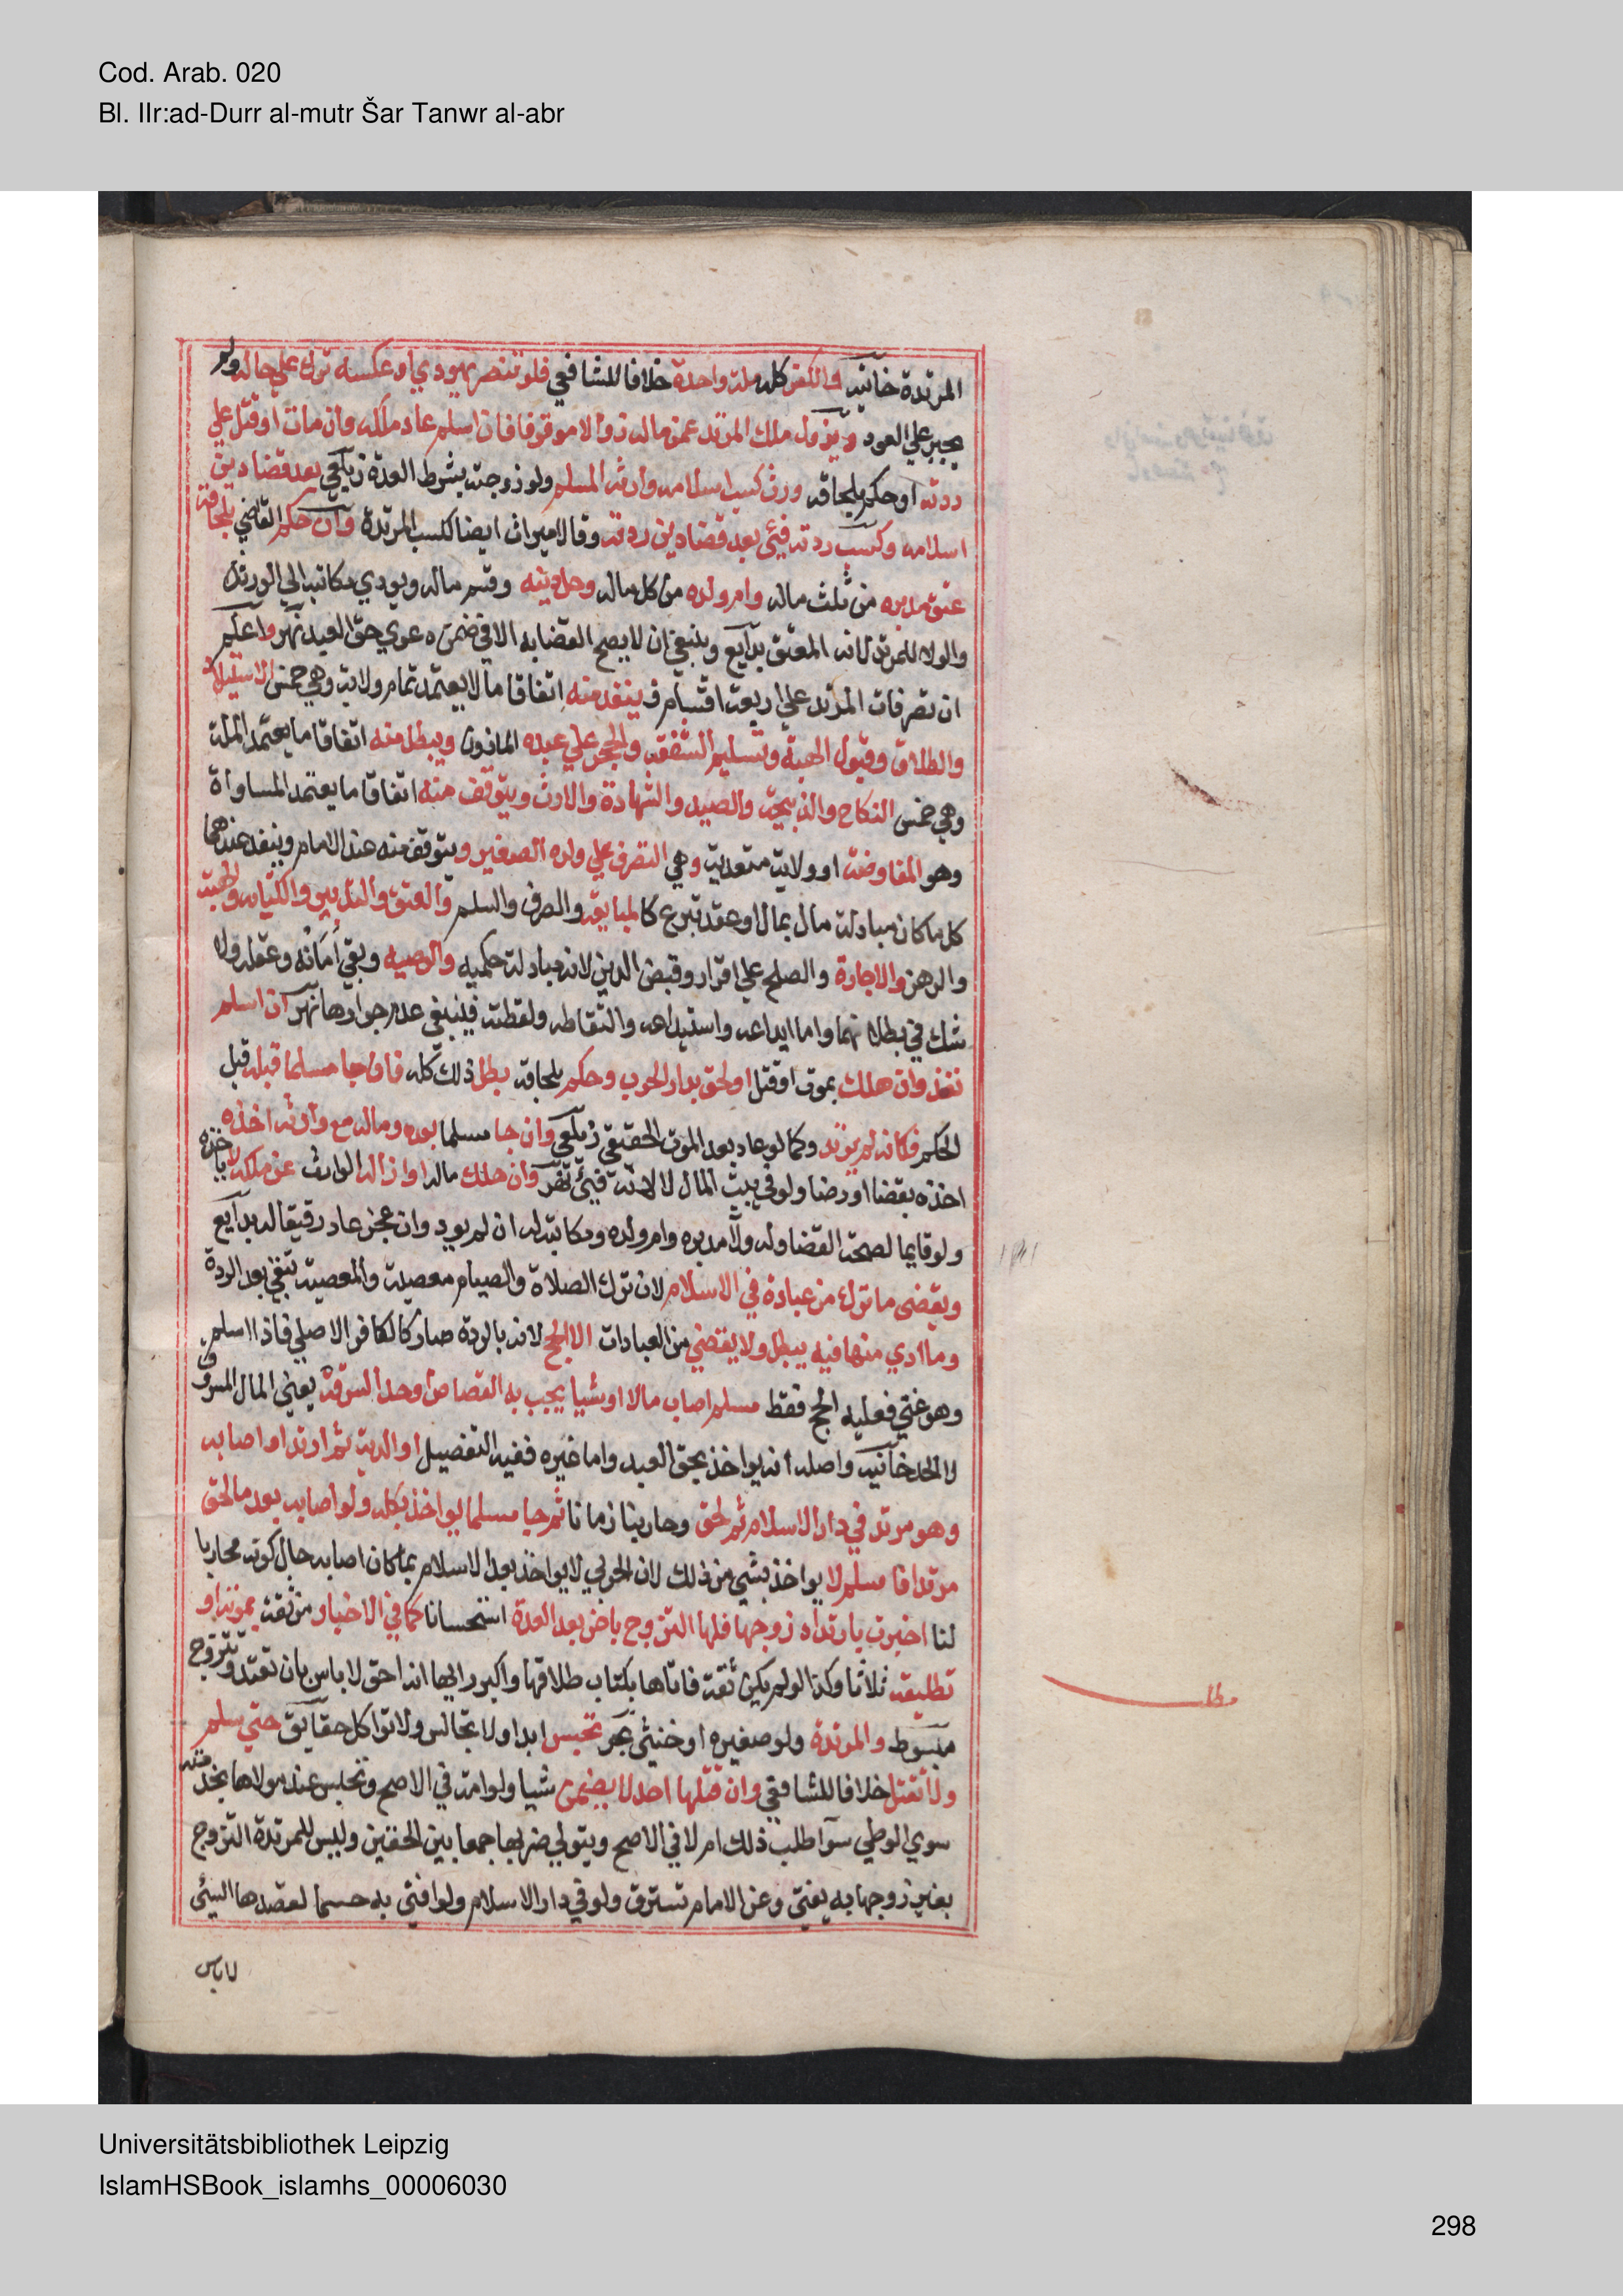 Cod. Arab. 020
Bl. IIr:ad-Durr al-mutr Šar Tanwr al-abr
المرتدة خانية والكفر كله ملة واحدة خلافا للشافعي فلو تنصر يهودي او عكسه ترك على حاله ولم
يجبر علي العود ويزول ملك المرتد عن ماله زوالا موقوفا فان اسلم عاد ملكه وان مات او قتل علي
ردته او حكم بلحاقه ورث كسب اسلامه وارثه المسلم ولو زوجته بشرط العدة زيلعي بعد قضا دين
اسلامه وكسب ردته فيئ بعد قضا دين ردته وقالا ميراث ايضا ككسب المرتدة وان حكم القاضي بلحاقه
عتق مدبره من ثلث ماله وام ولده من كل ماله وحل دينه وقسم ماله ويودي مكاتبه الي الورثة
والولا للمرتد لانه المعتق بدايع وينبغي ان لا يصح القضا به الا في ضمن دعوي حق العبد نهر واعلم
ان تصرفات المرتد علي اربعة اقسام فينفذ منه اتفاقا ما لا يعتمد تمام ولاية وهي خمس الاستيلاد
والطلاق وقبول الهبة وتسليم الشفعة والحجر علي عبده الماذون ويبطل منه اتفاقا ما يعتمد الملة
وهي خمس النكاح والذبيحة والصيد والشهادة والارث ويتوقف منه اتفاقا ما يعتمد المساواة
وهو المفاوضة او ولاية متعدية وهي التصرف علي ولده الصغير ويتوقف منه عند الامام وينفذ عندهما
كل ما كان مبادلة مال بمال او عقد تبرع كالمبايعة والصرف والسلم والعتق والتدبير والكتابة والهبة
والرهن والاجارة والصلح علي اقرار وقبض الدين لانه مبادلة حكمية والوصية وبقي أمانه وعقله ولا
شك في بطلانهما واما ايداعه واستيداعه والتقاطه ولقطته فينبغي عدم جوازها نهر ان اسلم
نفذ وان هلك بموت او قتل او لحق بدار الحرب وحكم بلحاقه بطل ذلك كله فان جا مسلما قبله قبل
الحكم فكانه لم يرتد وكما لو عاد بعد الموت الحقيقي زيلعي وان جا مسلما بعده وماله مع وارثه اخذه
اخذه بقضا او رضا ولو في بيت المال لا لانه فيئ نهر وان هلك ماله او ازاله الوارث عن ملكه لا ياخذه
ولو قايما لصحة القضا وله ولا مدبره وام ولده ومكاتبه له ان لم يود وان عجز عاد رقيقا له بدايع
ويقضي ما ترك من عبادة في الاسلام لان ترك الصلاة والصيام معصية والمعصية تبقي بعد الردة
وما ادي منها فيه يبطل ولا يقضي من العبادات الا الحج لانه بالردة صار كالكافر الاصلي فاذا اسلم
وهو غني فعليه الحج فقط مسلم اصاب مالا او شيا يجب به القصاص او حد السرقة يعني المال المسروق
لا الحد خانية واصله انه يواخذ بحق العبد واما غيره ففيه التفصيل او الدية ثم ارتد او اصابه
وهو مرتد في دار الاسلام ثم لحق وحاربنا زمانا ثم جا مسلما يواخذ بكله ولو اصابه بعد ما لحق
مرتدا فاسلم لا يواخذ بشي من ذلك لان الحربي لا يواخذ بعد الاسلام بما كان اصابه حال كونه محاربا
لنا اخبرت بارتداد زوجها فلها التزوج باخر بعد العدة استحسانا كما في الاخبار من ثقة بموته او
تطليقه ثلاثا وكذا لو لم يكن ثقة فاتاها بكتاب طلاقها واكبر رايها انه حق لا باس بان تعتد وتتزوج
مبسوط والمرتدة ولو صغيرة او خنثي بحر تحبس ابدا ولا تجالس ولا تواكل حقايق حتي تسلم
ولا تقتل خلافا للشافعي وان قتلها احد لا يضمن شيا ولو امة في الاصح وتحبس عند مولاها لخدمته
سوي الوطي سوا طلب ذلك ام لا في الاصح ويتولي ضربها جمعا بين الحقين وليس للمرتدة التزوج
بغير زوجها به يفتي وعن الامام تسترق ولو في دار الاسلام ولو افتي به حسما لقصدها السيئ
لا باس
مطل
Universitätsbibliothek Leipzig
IslamHSBook_islamhs_00006030
298